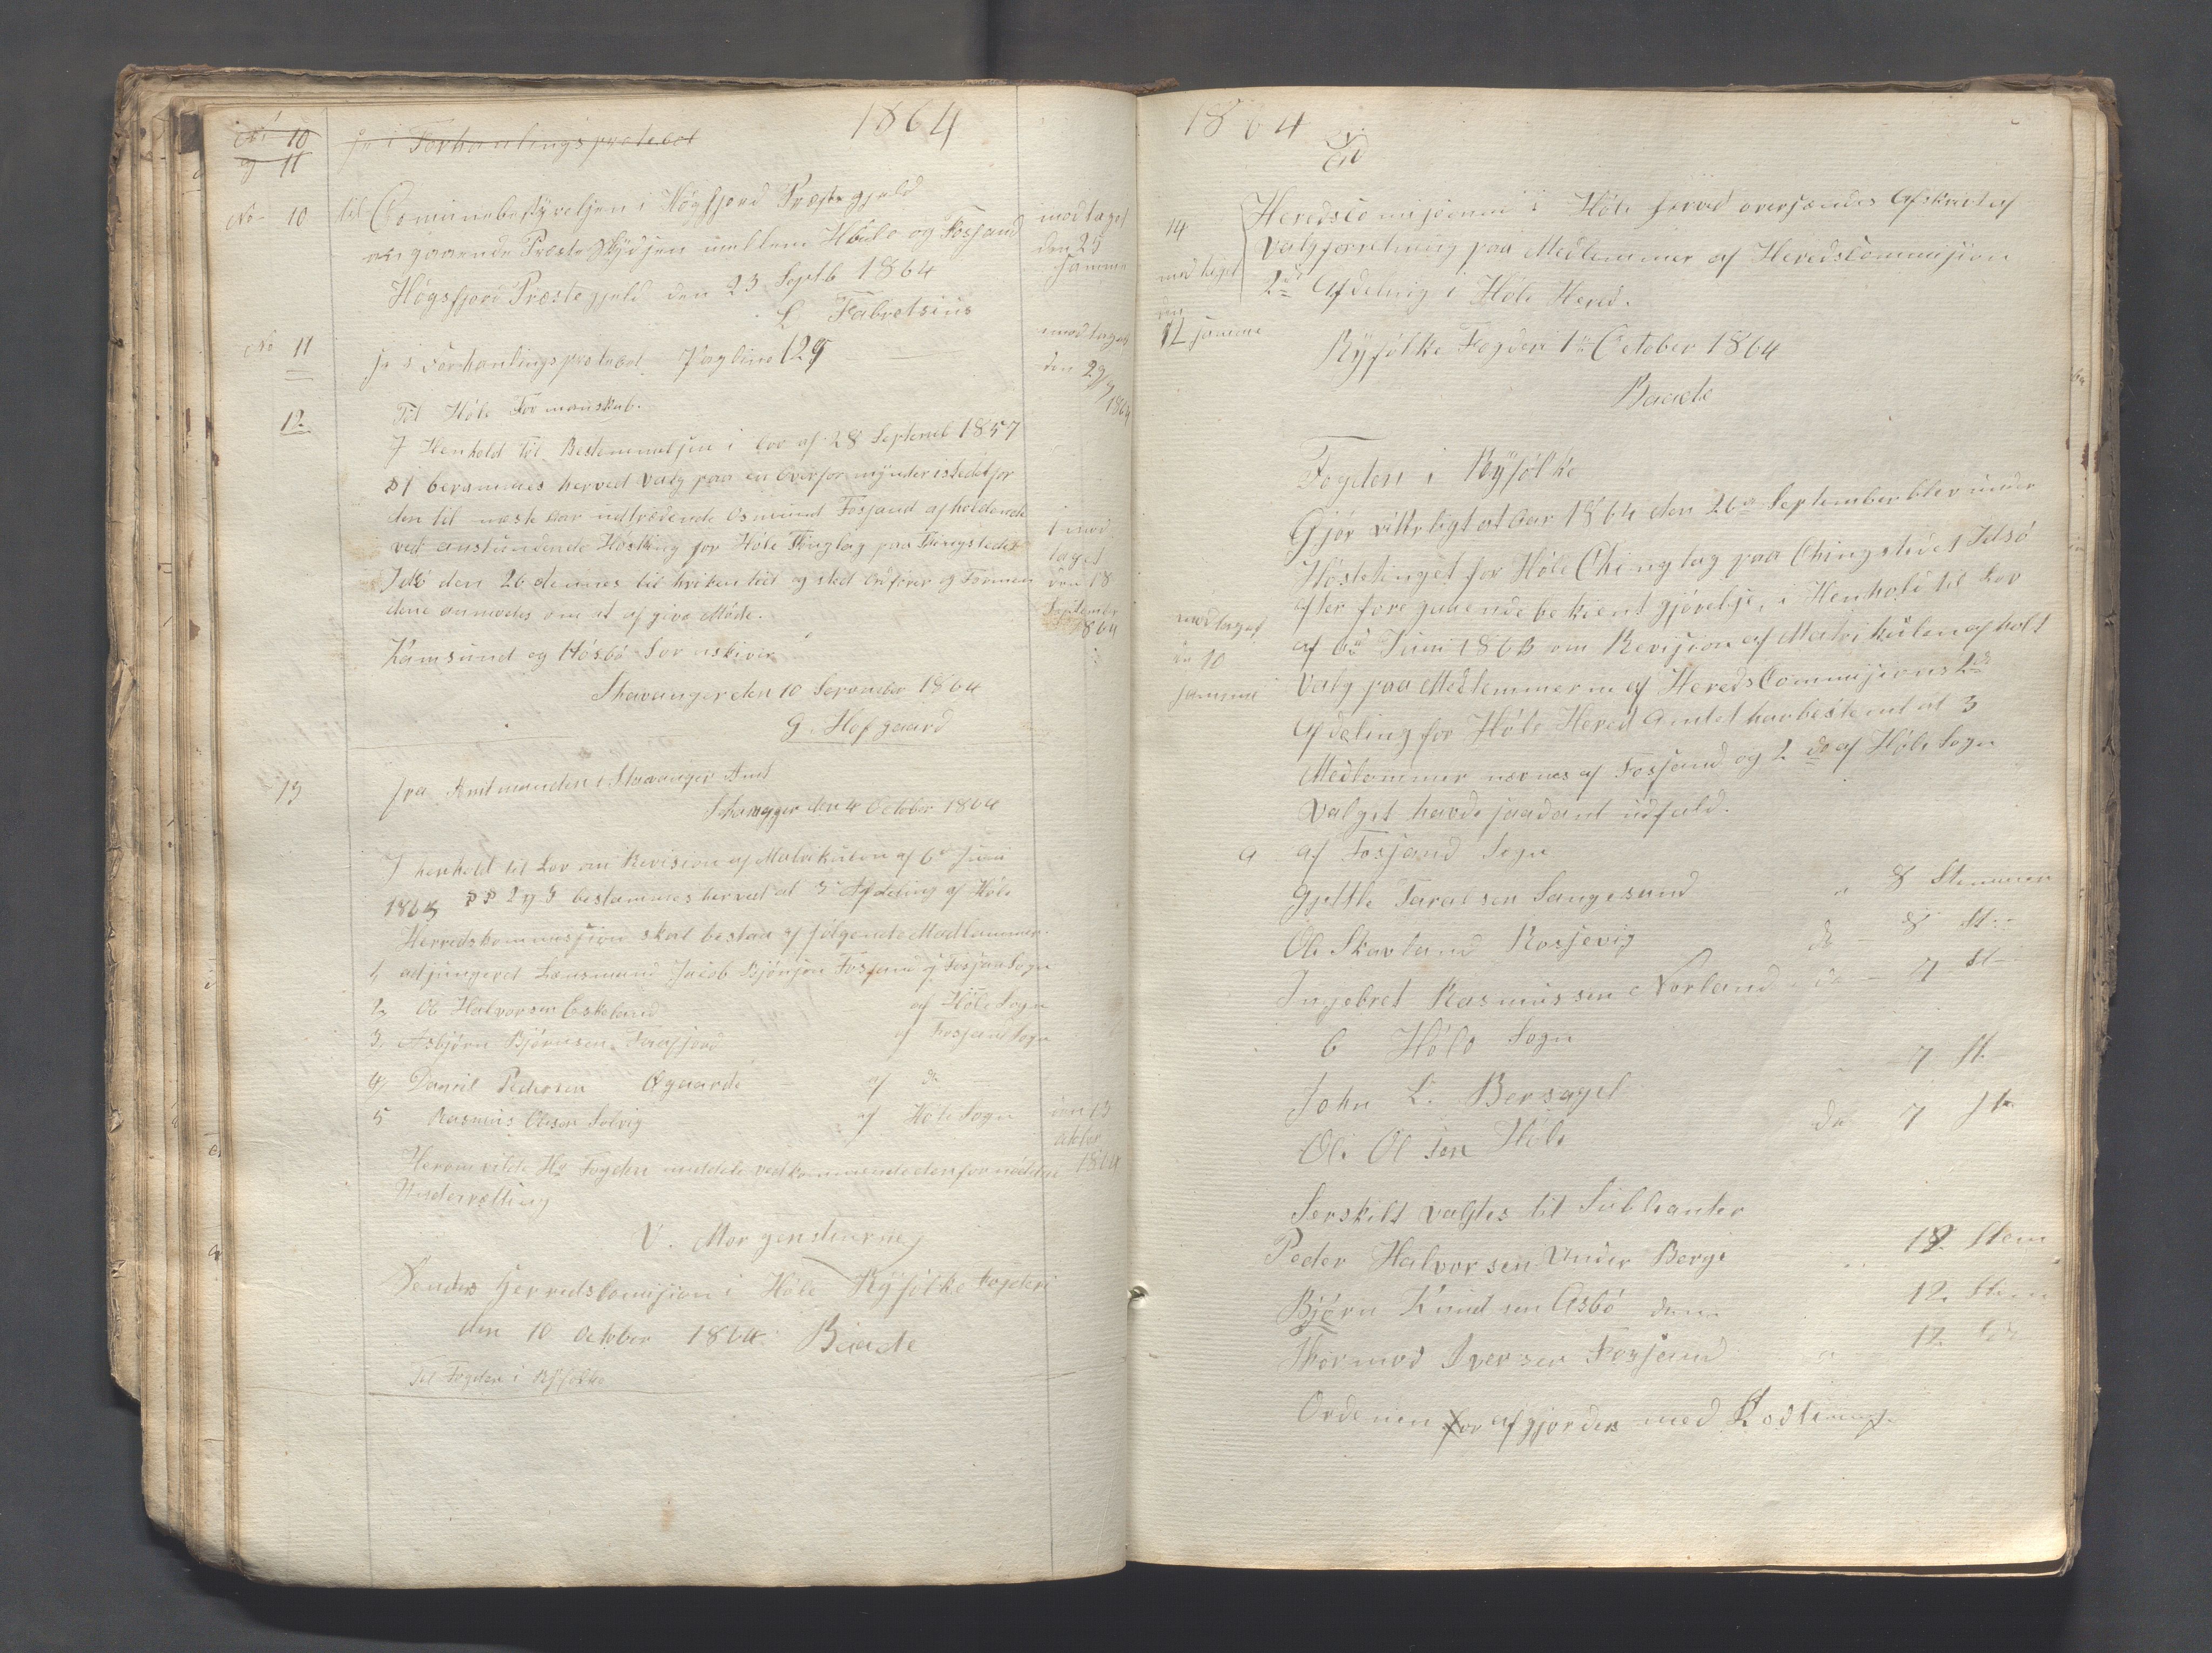 1864
No 10 se i Forhanlingsprotocol
og 11
No 10 til Comunebestyrelsen i Høgsfjord Præstegjeld
angaaende Præste Skydsen imellem Høle og Fosjand
Høgsfjord Præstegjeld den 23 Septb 1864
L. Fabretsius
modtaget
den 25
samme
No 11 se i Forhanlingsprotocol Pagline 129
modtaget
den 29/9 1864
12. Til Høle Formanskab.
I Henhold til Bestemmelsen i Lov af 28 Septemb 1857
§ 1 berammes herved Valg paa en Overformynder istedetfor
den til næste Aar udtrædende Osmund Fosjand afholdende
ved anstundende Høsting for Høle Thinglag paa Thingstedet
Idsø den 26 dennes til hvilken tid og sted Ordfører og Formen
dene anmodes om at afgive Møde.
modtaget
den 18
September
1864
Kamsund og Høsbø Sorenskiver
Stavanger den 10 September 1864
G. Hofgaard
13 fra Amtmanden i Stavanger Amt
Stavanger den 4 October 1864
I henhold til Lov om Revision af Matrikulen af 6te Juni
1863 §§ 2 og 3 bestemmes herved at 3 Afdeling af Høle
Herredskommissjion skal bestaa af følgende Medlemmer.
1, adjungeret Lænsmand Jacob Bjønsen Fosjand af Fosjan Sogn
2, Ole Halvorsen Eskeland af Høle Sogn
3, Asbjørn Bjørnsen Frafjord af Fosjand Sogn
4, Daniel Pedersen Øgaarde af do
5 Rasmus Olesen Selvig af Høle Sogn
Herom vilde Hr Fogden meddele vedkommende den fornødne
Underretting
den 13
oktbr
1864
V. Morgenstierne
Sendes Herredscomisjion i Høle Ryfølke Fogderi
den 10 October 1864. Baade
Til Fogden i Ryfølke
1864
Til
14 Heredscomisjionen i Høle herved oversendes Afskrivt af
Valgforretning paa Medlemmer af Heredscommisjion
2de Afdeling i Høle Hered.
modtaget
den
12 samme
Ryfølke Fogderi 1te October 1864
Baade
Fogden i Ryfølke
Gjør vitterligt at Aar 1864 den 26de September blev under
Høstetinget for Høle Thinglag paa Thingstedet Idsø
efter foregaaende bekient gjørelse, i Henhold til Lov
af 6te Juni 1863 om Revision af Matrikulen afholt
Valg paa Medlemmerne af HeredsCommisjions 2de
Afdeling for Høle Hered Amtet har bestemt at 3
Medlemmer nævnes af Fosjand og 2 do af Høle Sogn
Valget havde saadant udfald.
modtaget
den 10
samme
a af Fosjand Sogn
Gjettle Taralsen Sangesand " 8 Stemmer
Ole Skavland Rosjevig do - 8 St
Ingebret Rasmussen Norland do - 7 St
b Høle Sogn
John L. Bersagel 7 St.
Ole Olsen Høle do 7 St
Serskilt valgtes til Subleanter
Peder Halvorsen Under Berge 12. Stem
Bjørn Knudsen Asbø 12. Stem
Thormod Iversen Fosjand " 12. do
Ordenen for afgjordes med Lodtræning